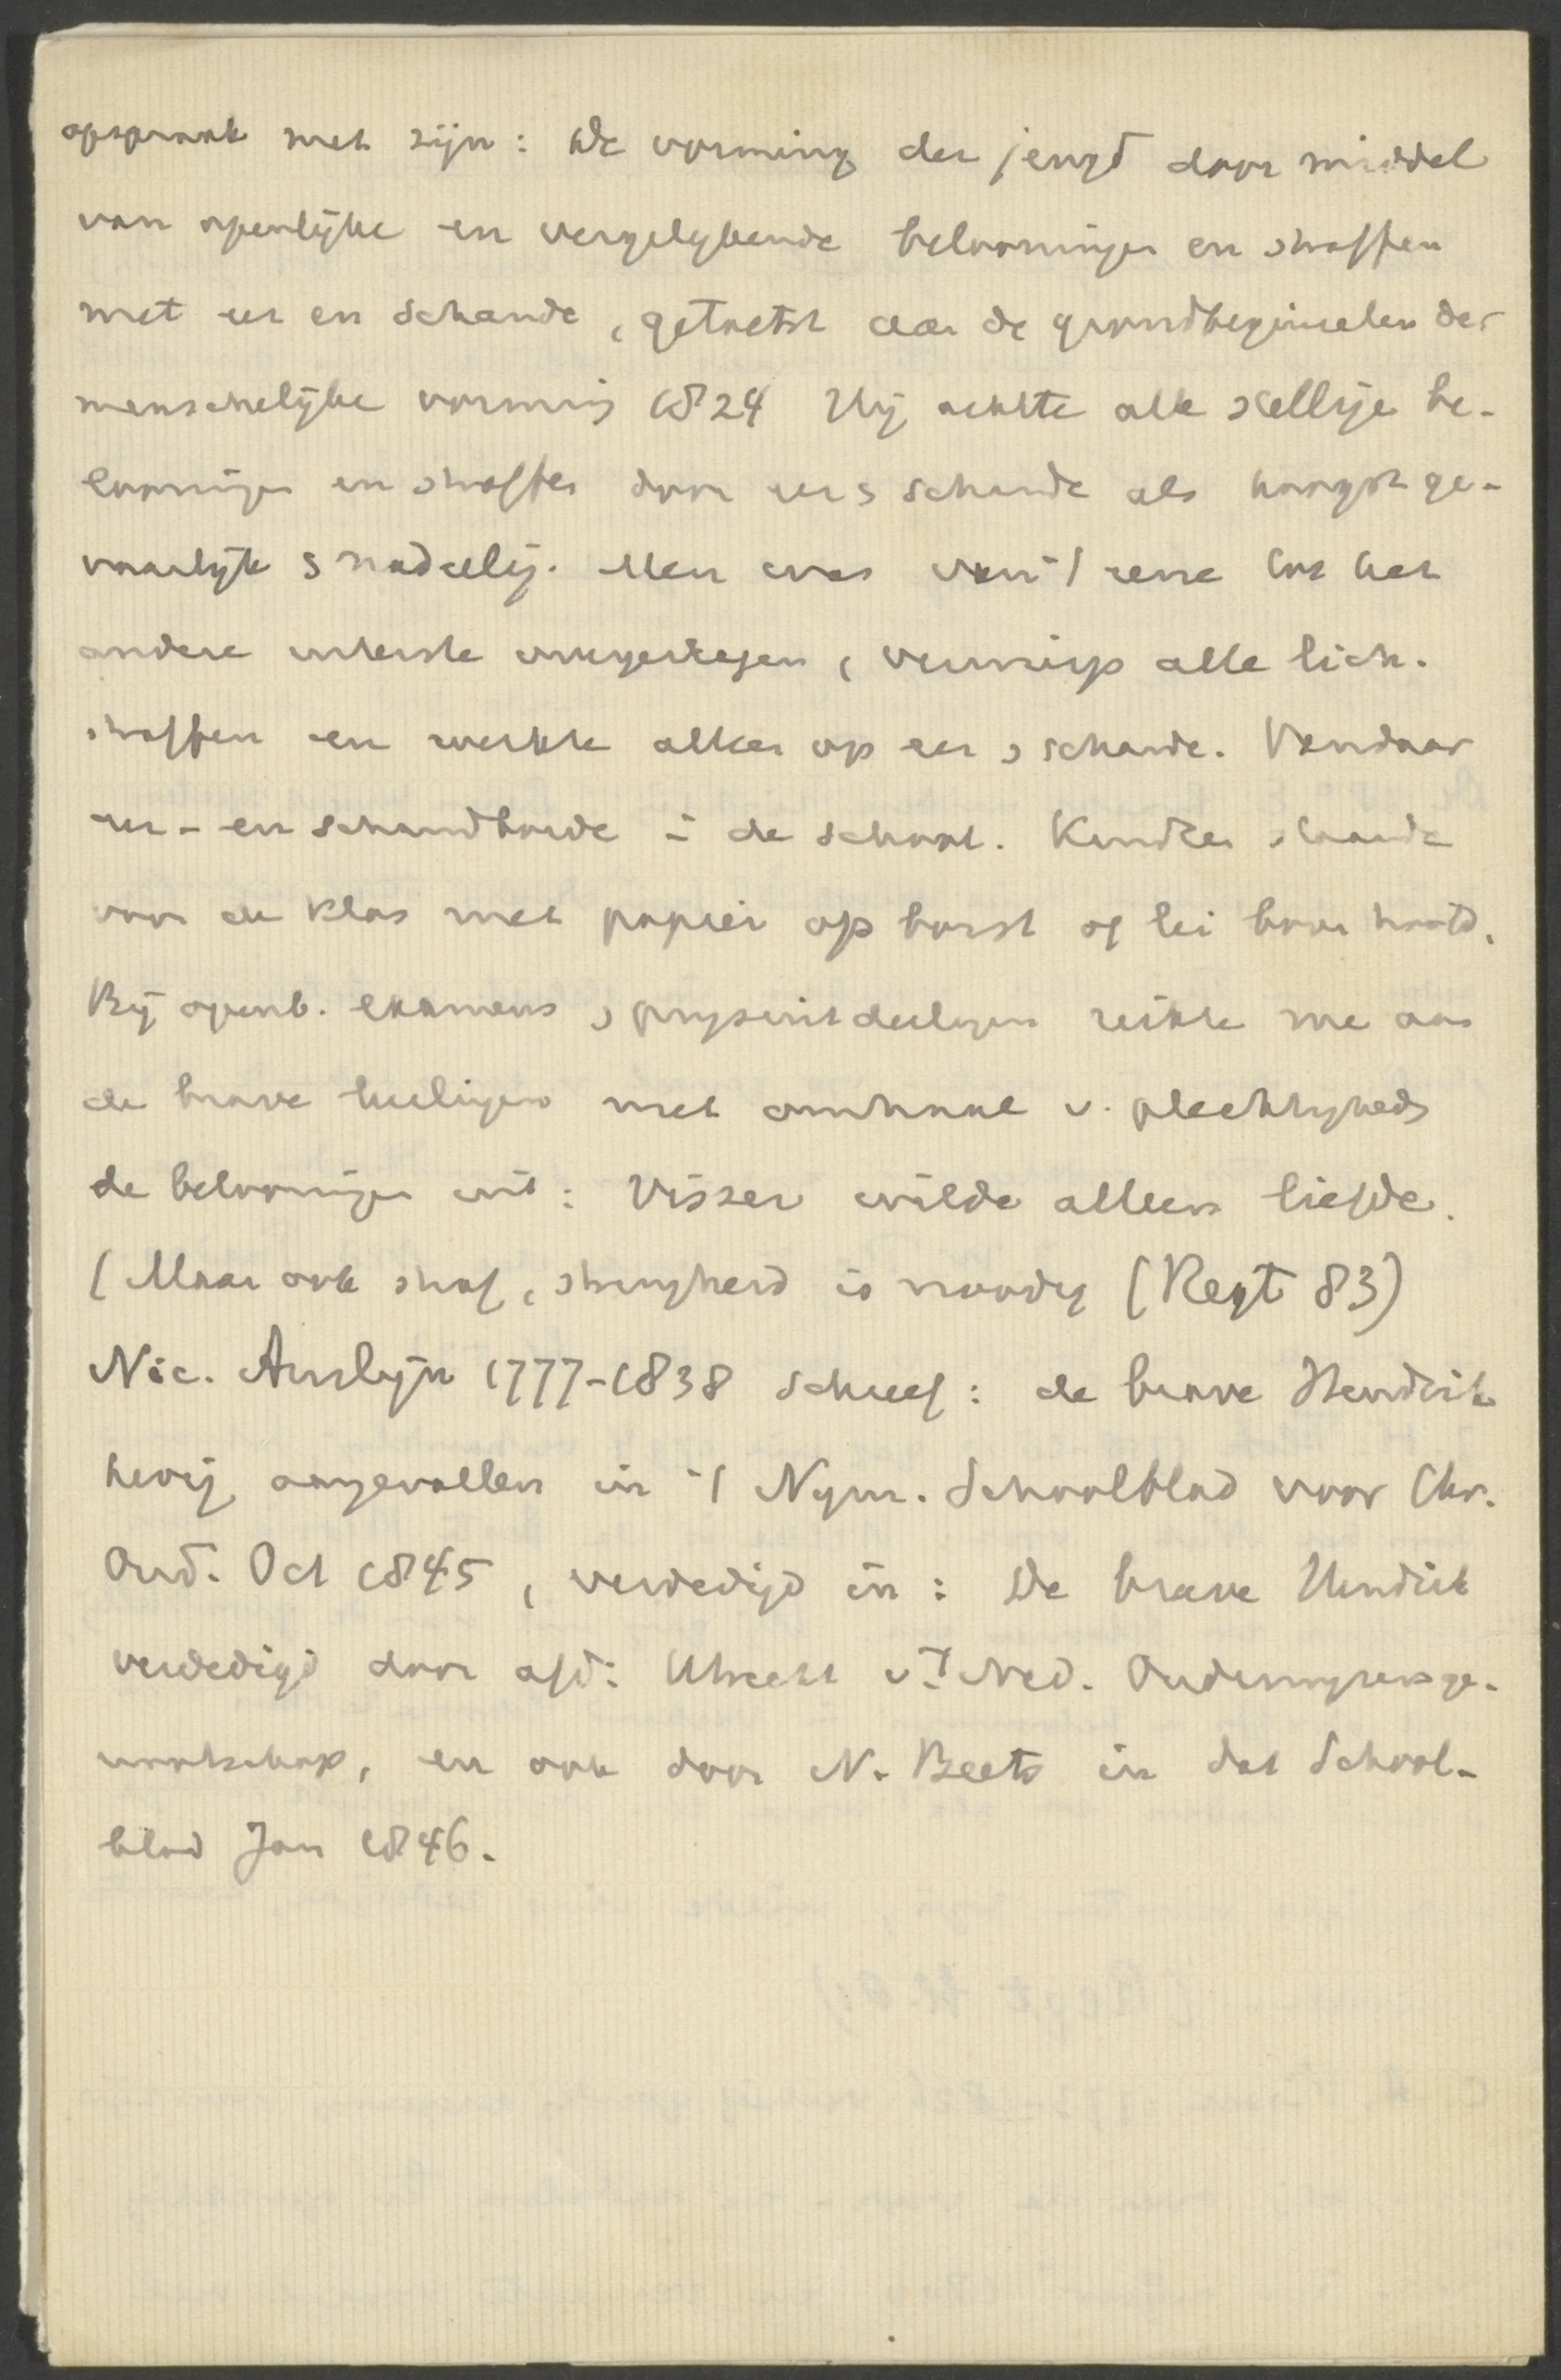 opspraak met zijn: De vorming der jeugd door middel
van openlijke en vergelykende belooningen en straffen
met eer en schande, getoetst aan de grondbeginselen der
menschelijke vorming 1824 Hij achtte alle stellige be-
looningen en straffen door eer & schande als hoogst ge-
vaarlijk & nadeelig. Men was van 't eene tot het
andere uiterste overgeslagen, verwierp alle lich.
straffen en werkte alleen op eer & schande. Vandaar
eer- en schandborde in de school. Kinderen staande
voor de klas met papier op borst of lei boven hoofd.
Bij openb. examens & prysuitdeelingen reikte me aan
de brave leerlingen met omhaal v. plechtigheds
de belooningen uit: Visser wilde alleen liefde.
(Maar ook straf, strengheid is noodig (Regt 83)
Nic. Anslijn 1777-1838 schreef: de brave Hendrik
hevig aangevallen in 't Nym. Schoolblad voor Chr.
Ond. Oct 1845, verdedigd in: De brave Hendrik
verdedigd door afd: Utrecht v.'t Ned. Onderwyzersge-
nootschap, en ook door N. Beets in dat School-
blad Jan 1846.